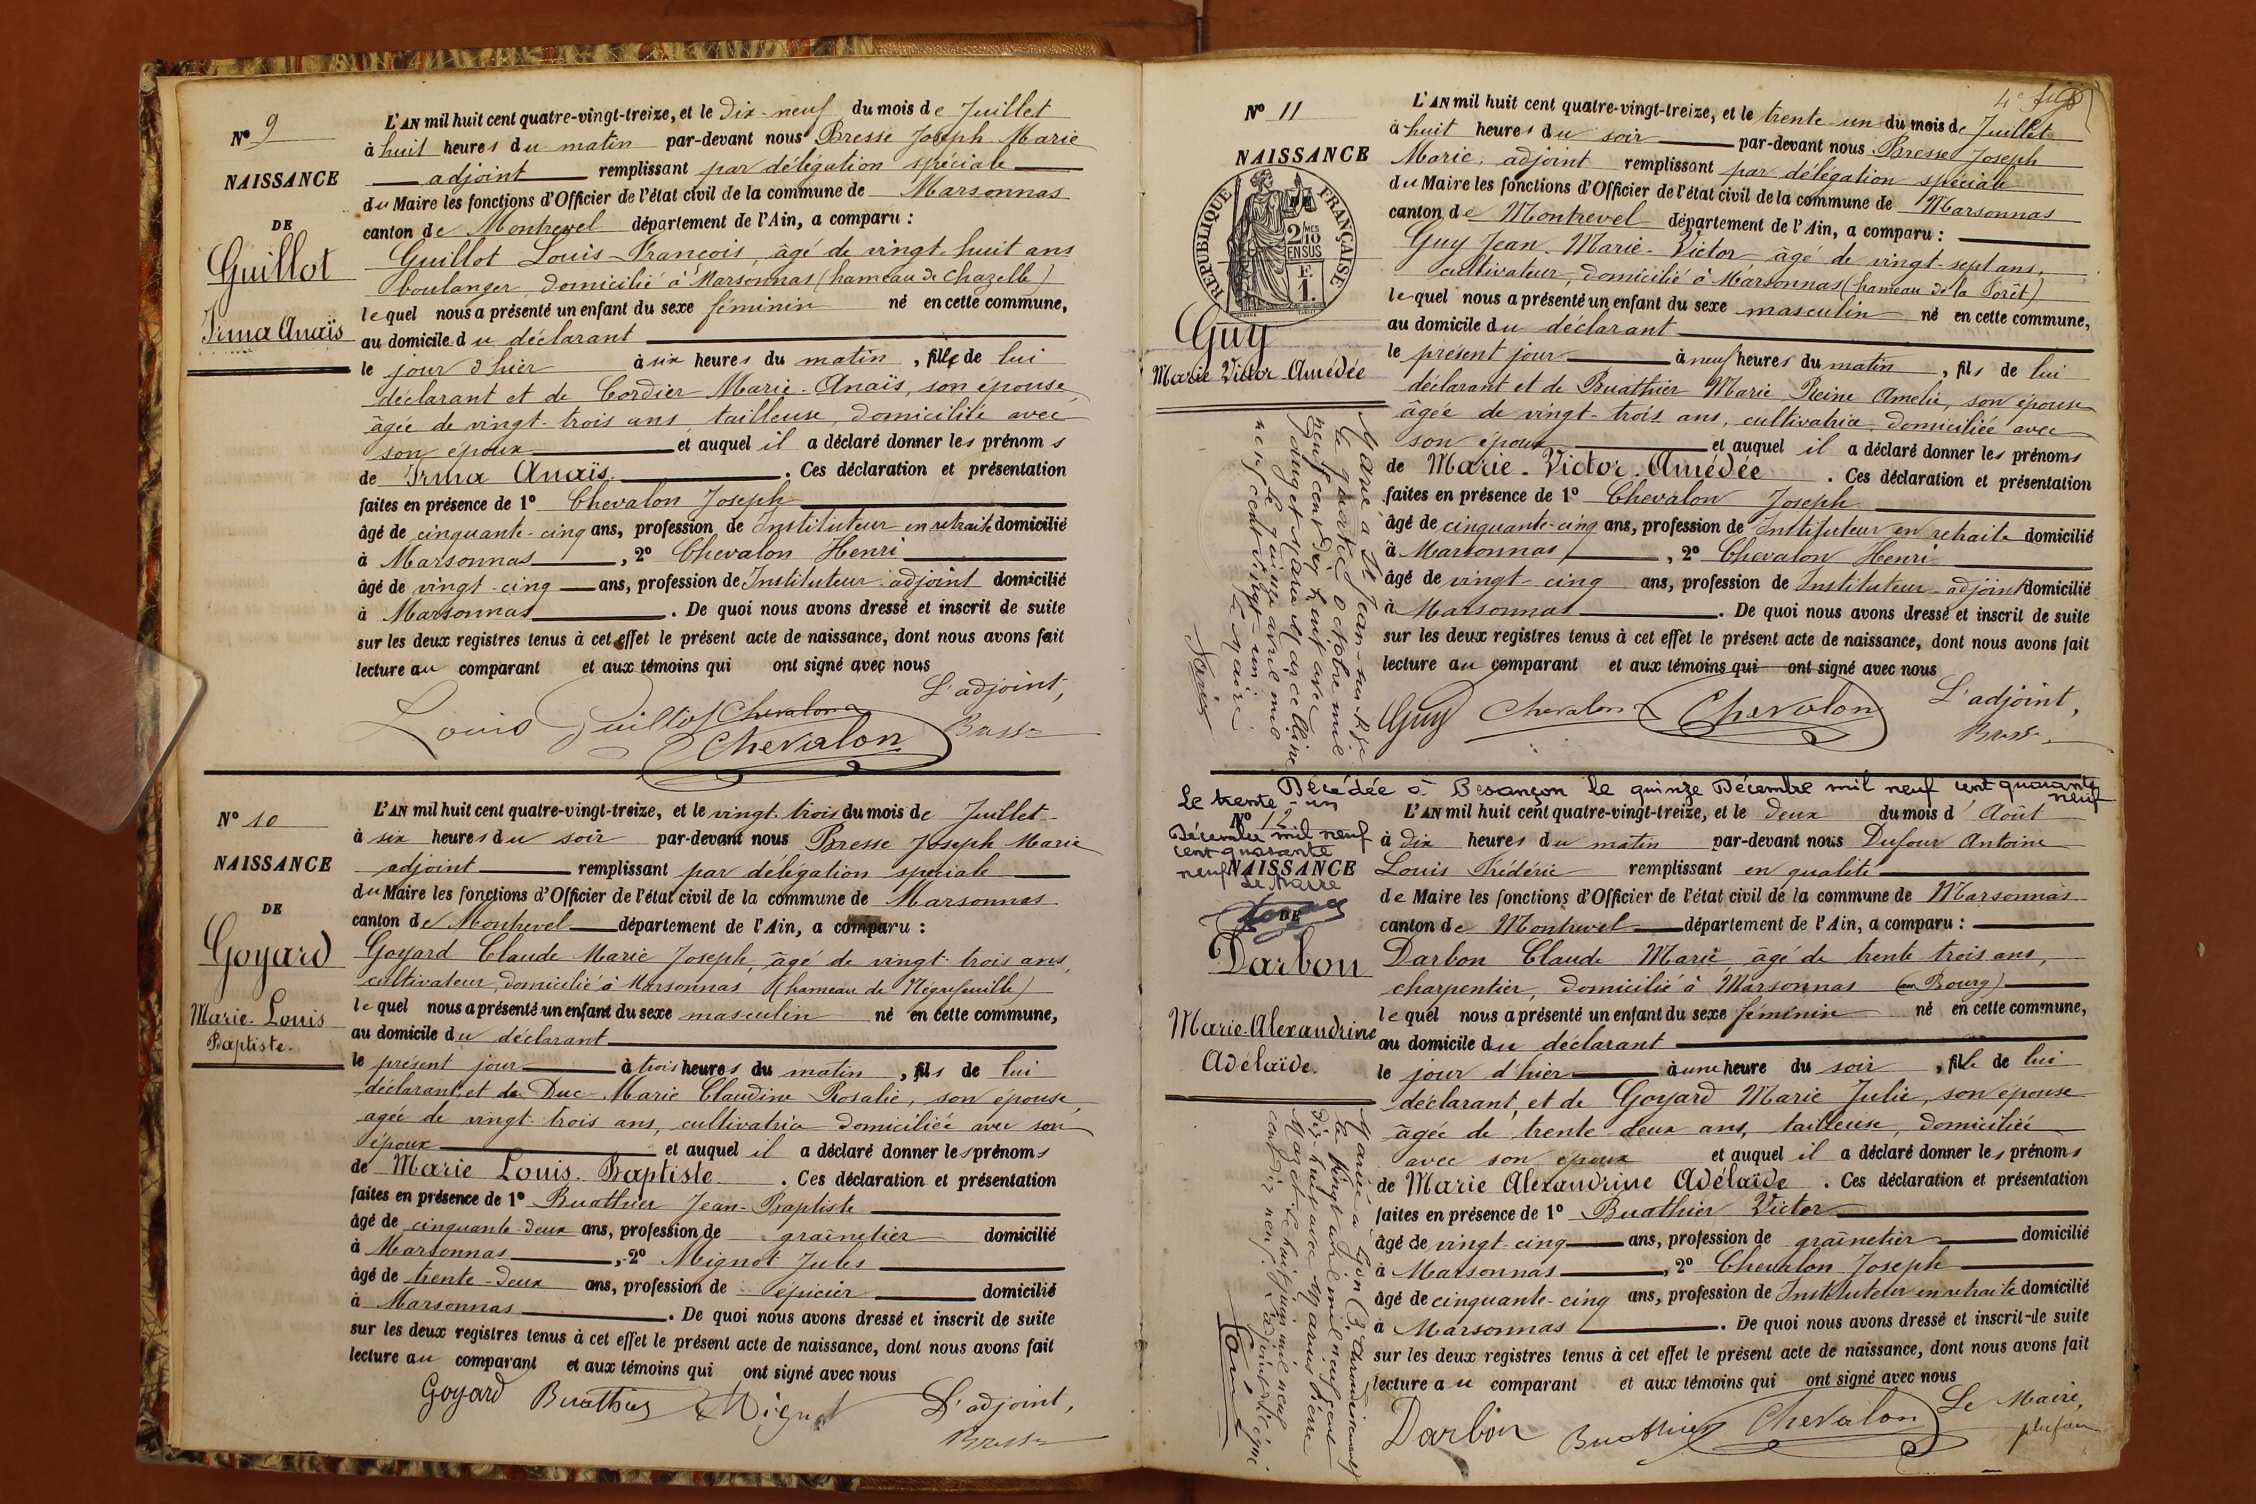 N° 9
NAISSANCE
DE
Guillot
Irma Anaïs
L'AN mil huit cent quatre-vingt-treize, et le Dix-neuf du mois de Juillet
à huit heures du matin par-devant nous Bresse Joseph Marie
adjoint remplissant par délégation spéciale
du Maire les fonctions d'Officier de l'état civil de la commune de Marsonnas
canton de Montrevel département de l'Ain, a comparu :
Guillot Louis-François, âgé de vingt-huit ans
boulanger, domicilié à Marsonnas (hameau de Chazelle)
lequel nous a présenté un enfant du sexe féminin né en cette commune,
au domicile du déclarant
le jour d'hier à six heures du matin, fille de lui
déclarant et de Cordier Marie-Anaïs, son épouse,
âgée de vingt-trois ans, tailleuse, domiciliée avec
son époux et auquel il a déclaré donner les prénoms
de Irma Anaïs. Ces déclaration et présentation
faites en présence de 1° Chevalon Joseph
âgé de cinquante-cinq ans, profession de Instituteur en retraite domicilié
à Marsonnas, 2° Chevalon Henri
âgé de vingt-cinq ans, profession de Instituteur-adjoint domicilié
à Marsonnas. De quoi nous avons dressé et inscrit de suite
sur les deux registres tenus à cet effet le présent acte de naissance, dont nous avons fait
lecture au comparant et aux témoins qui ont signé avec nous
L'adjoint,
Louis Guillot Chevalon
Chevalon Bresse
N° 10
NAISSANCE
DE
Goyard
Marie-Louis
Baptiste.
L'AN mil huit cent quatre-vingt-treize, et le vingt-trois du mois de Juillet
à six heures du soir par-devant nous Bresse Joseph Marie
adjoint remplissant par délégation spéciale
du Maire les fonctions d'Officier de l'état civil de la commune de Marsonnas
canton de Montrevel département de l'Ain, a comparu :
Goyard Claude Marie Joseph, âgé de vingt-trois ans,
cultivateur, domicilié à Marsonnas (hameau de Négrefeuille)
lequel nous a présenté un enfant du sexe masculin né en cette commune,
au domicile du déclarant
le présent jour à trois heures du matin, fils de lui
déclarant, et de Duc Marie Claudine Rosalie, son épouse,
agée de vingt-trois ans, cultivatrice domiciliée avec son
époux et auquel il a déclaré donner les prénoms
de Marie Louis Baptiste. Ces déclaration et présentation
faites en présence de 1° Buathier Jean-Baptiste
âgé de cinquante-deux ans, profession de grainetier domicilié
à Marsonnas, 2° Mignot Jules
âgé de trente-deux ans, profession de épicier domicilié
à Marsonnas. De quoi nous avons dressé et inscrit de suite
sur les deux registres tenus à cet effet le présent acte de naissance, dont nous avons fait
lecture au comparant et aux témoins qui ont signé avec nous
Goyard Buathier Mignot L'adjoint,
Bresse
4e
N° 11
NAISSANCE
RÉPUBLIQUE FRANÇAISE
2/10 MES
EN SUS
F.
1.
Guy
Marie Victor Amédée
L'AN mil huit cent quatre-vingt-treize, et le trente-un du mois de Juillet
à huit heures du soir par-devant nous Bresse Joseph
Marie, adjoint remplissant par délégation spéciale
du Maire les fonctions d'Officier de l'état civil de la commune de Marsonnas
canton de Montrevel département de l'Ain, a comparu :
Guy Jean-Marie-Victor âgé de vingt-sept ans,
cultivateur, domicilié à Marsonnas (hameau de la Forêt)
lequel nous a présenté un enfant du sexe masculin né en cette commune,
au domicile du déclarant
le présent jour à neuf heures du matin, fils de lui
déclarant et de Buathier Marie Reine Amélie, son épouse
âgée de vingt-trois ans, cultivatrice domiciliée avec
son époux et auquel il a déclaré donner les prénoms
de Marie-Victor-Amédée. Ces déclaration et présentation
faites en présence de 1° Chevalon Joseph
âgé de cinquante-cinq ans, profession de Instituteur en retraite domicilié
à Marsonnas, 2° Chevalon Henri
âgé de vingt-cinq ans, profession de Instituteur-adjoint domicilié
à Marsonnas. De quoi nous avons dressé et inscrit de suite
sur les deux registres tenus à cet effet le présent acte de naissance, dont nous avons fait
lecture au comparant et aux témoins qui ont signé avec nous
L'adjoint,
Guy Chevalon Chevalon
Bresse
Marié à St Jean-sur-Rze
le quatre octobre mil
neuf cent dix huit avec
Marie Marcelline
le quinze avril mil
neuf cent vingt-un
Le Maire
Décédée à Besançon le quinze Décembre mil neuf cent quarante
neuf
Le trente-un
Décembre mil neuf
cent quarante
neuf Le Maire
N° 12
NAISSANCE
DE
Darbon
Marie-Alexandrine
Adélaïde.
L'AN mil huit cent quatre-vingt-treize, et le deux du mois d'Août
à dix heures du matin par-devant nous Dufour Antoine
Louis Frédéric remplissant en qualité
de Maire les fonctions d'Officier de l'état civil de la commune de Marsonnas
canton de Montrevel département de l'Ain, a comparu :
Darbon Claude Marie âgé de trente trois ans,
charpentier, domicilié à Marsonnas (au Bourg)
lequel nous a présenté un enfant du sexe féminin né en cette commune,
au domicile du déclarant
le jour d'hier à une heure du soir, fille de lui
déclarant, et de Goyard Marie Julie, son épouse
âgée de trente-deux ans, tailleuse, domiciliée
avec son époux et auquel il a déclaré donner les prénoms
de Marie Alexandrine Adélaïde. Ces déclaration et présentation
faites en présence de 1° Buathier Victor
âgé de vingt-cinq ans, profession de grainetier domicilié
à Marsonnas, 2° Chevalon Joseph
âgé de cinquante-cinq ans, profession de Instituteur en retraite domicilié
à Marsonnas. De quoi nous avons dressé et inscrit de suite
sur les deux registres tenus à cet effet le présent acte de naissance, dont nous avons fait
lecture au comparant et aux témoins qui ont signé avec nous
Le Maire,
Darbon Buathier Chevalon Dufour
Mariée à Lyon (3e Arrondissement)
le vingt avril mil neuf cent
dix-huit avec Marius Pierre
Mazet le huit juin mil neuf
cent dix neuf. L'adjoint délégué